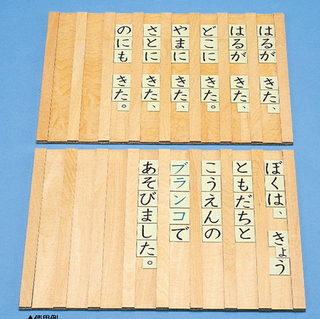 はるが きた、
はるが きた、
どこに きた。
やまに きた、
さとに きた、
のにも きた。
ぼくは、きょう
ともだちと
こうえんの
ブランコで
あそびました。
▲使用例